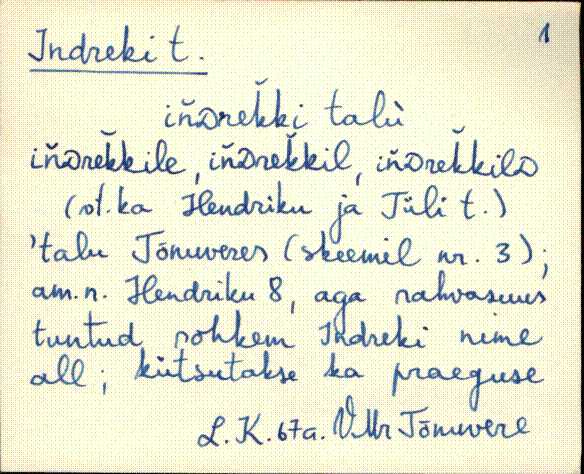 1
Indreki t.
iňᴅreǩki talù
iňᴅreǩkile, iňᴅreǩkil, iňᴅreǩkilᴅ
(vt. ka Hendriku ja Jüli t.)
'talu Tõnuveres (skeemil nr. 3);
am.n. Hendriku 8, aga rahvasuus
tuntud rohkem Indreki nime
all; kutsutakse ka praeguse
L.K. 67a. VMr Tõnuvere